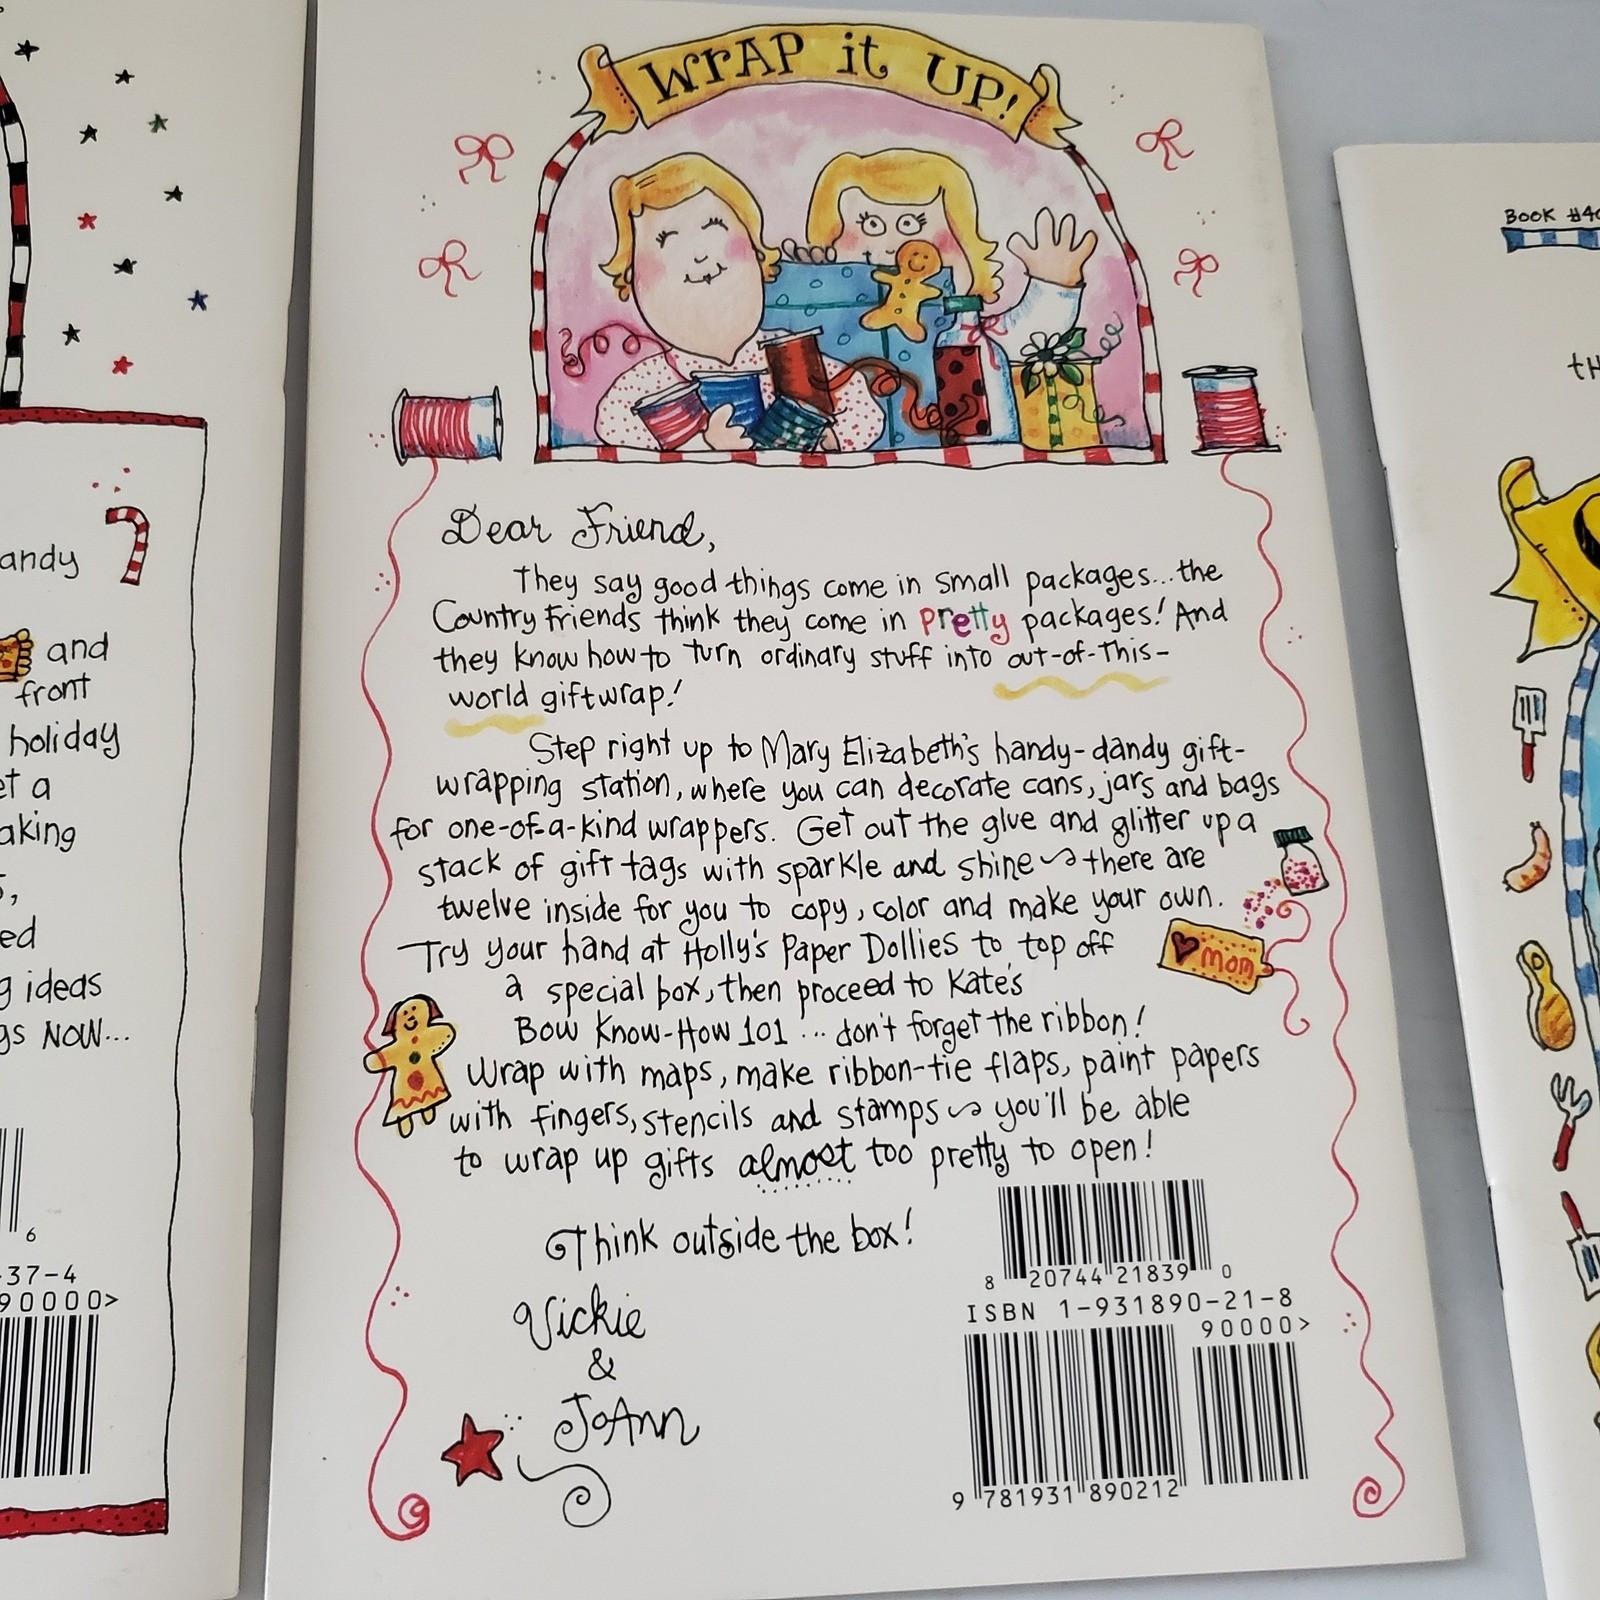 WrAP it UP!
Dear Friend,
They say good things come in small packages...the
Country Friends think they come in pretty packages! And
they know how to turn ordinary stuff into out-of-this-
world giftwrap!
Step right up to Mary Elizabeth's handy-dandy gift-
wrapping station, where you can decorate cans, jars and bags
for one-of-a-kind wrappers. Get out the glue and glitter up a
stack of gift tags with sparkle and shine ~ there are
twelve inside for you to copy, color and make your own.
Try your hand at Holly's Paper Dollies to top off
a special box, then proceed to Kate's
Bow Know-How 101 ... don't forget the ribbon!
Wrap with maps, make ribbon-tie flaps, paint papers
with fingers, stencils and stamps ~ you'll be able
to wrap up gifts almost too pretty to open!
Think outside the box!
Vickie
&
JoAnn
mom
8 20744 21839 0
ISBN 1-931890-21-8
90000>
9 781931 890212
andy
and
front
holiday
et a
aking
ed
g ideas
gs NOW...
6
37-4
90000>
BOOK #4
tH